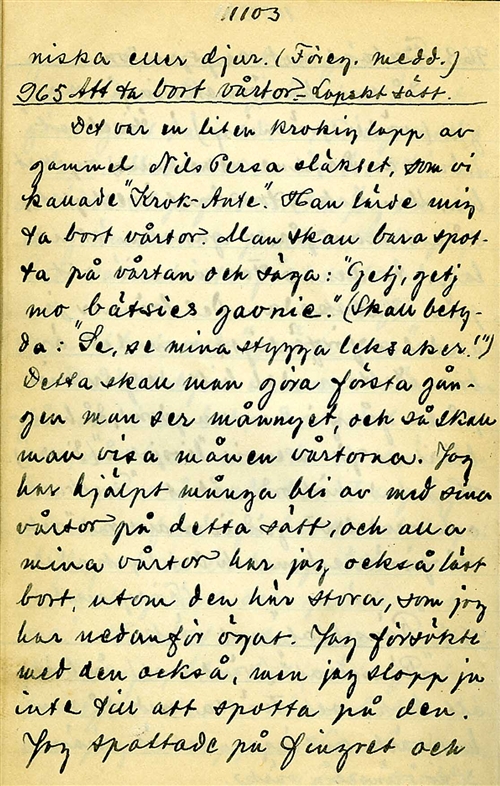 11103
niska eller djur. (Föreg. medd.)
965 Att ta bort vårtor. - Lapskt sätt.
Det var en liten krokig lapp av
gammel Nils Persa släktet, som vi
kallade "Krok-Ante". Han lärde mig
ta bort vårtor. Man skall bara spot-
ta på vårtan och säga: "Getj, getj
mo bätsies gavnie." (Skall bety-
da: "Se, se mina stygga leksaker!")
Detta skall man göra första gån-
gen man ser månnyet, och så skall
man visa månen vårtorna. Jag
har hjälpt många bli av med sina
vårtor på detta sätt, och alla
mina vårtor har jag också läst
bort, utom den här stora, som jag
har nedanför ögat. Jag försökte
med den också, men jag slapp ju
inte till att spotta på den.
Jag spottade på fingret och